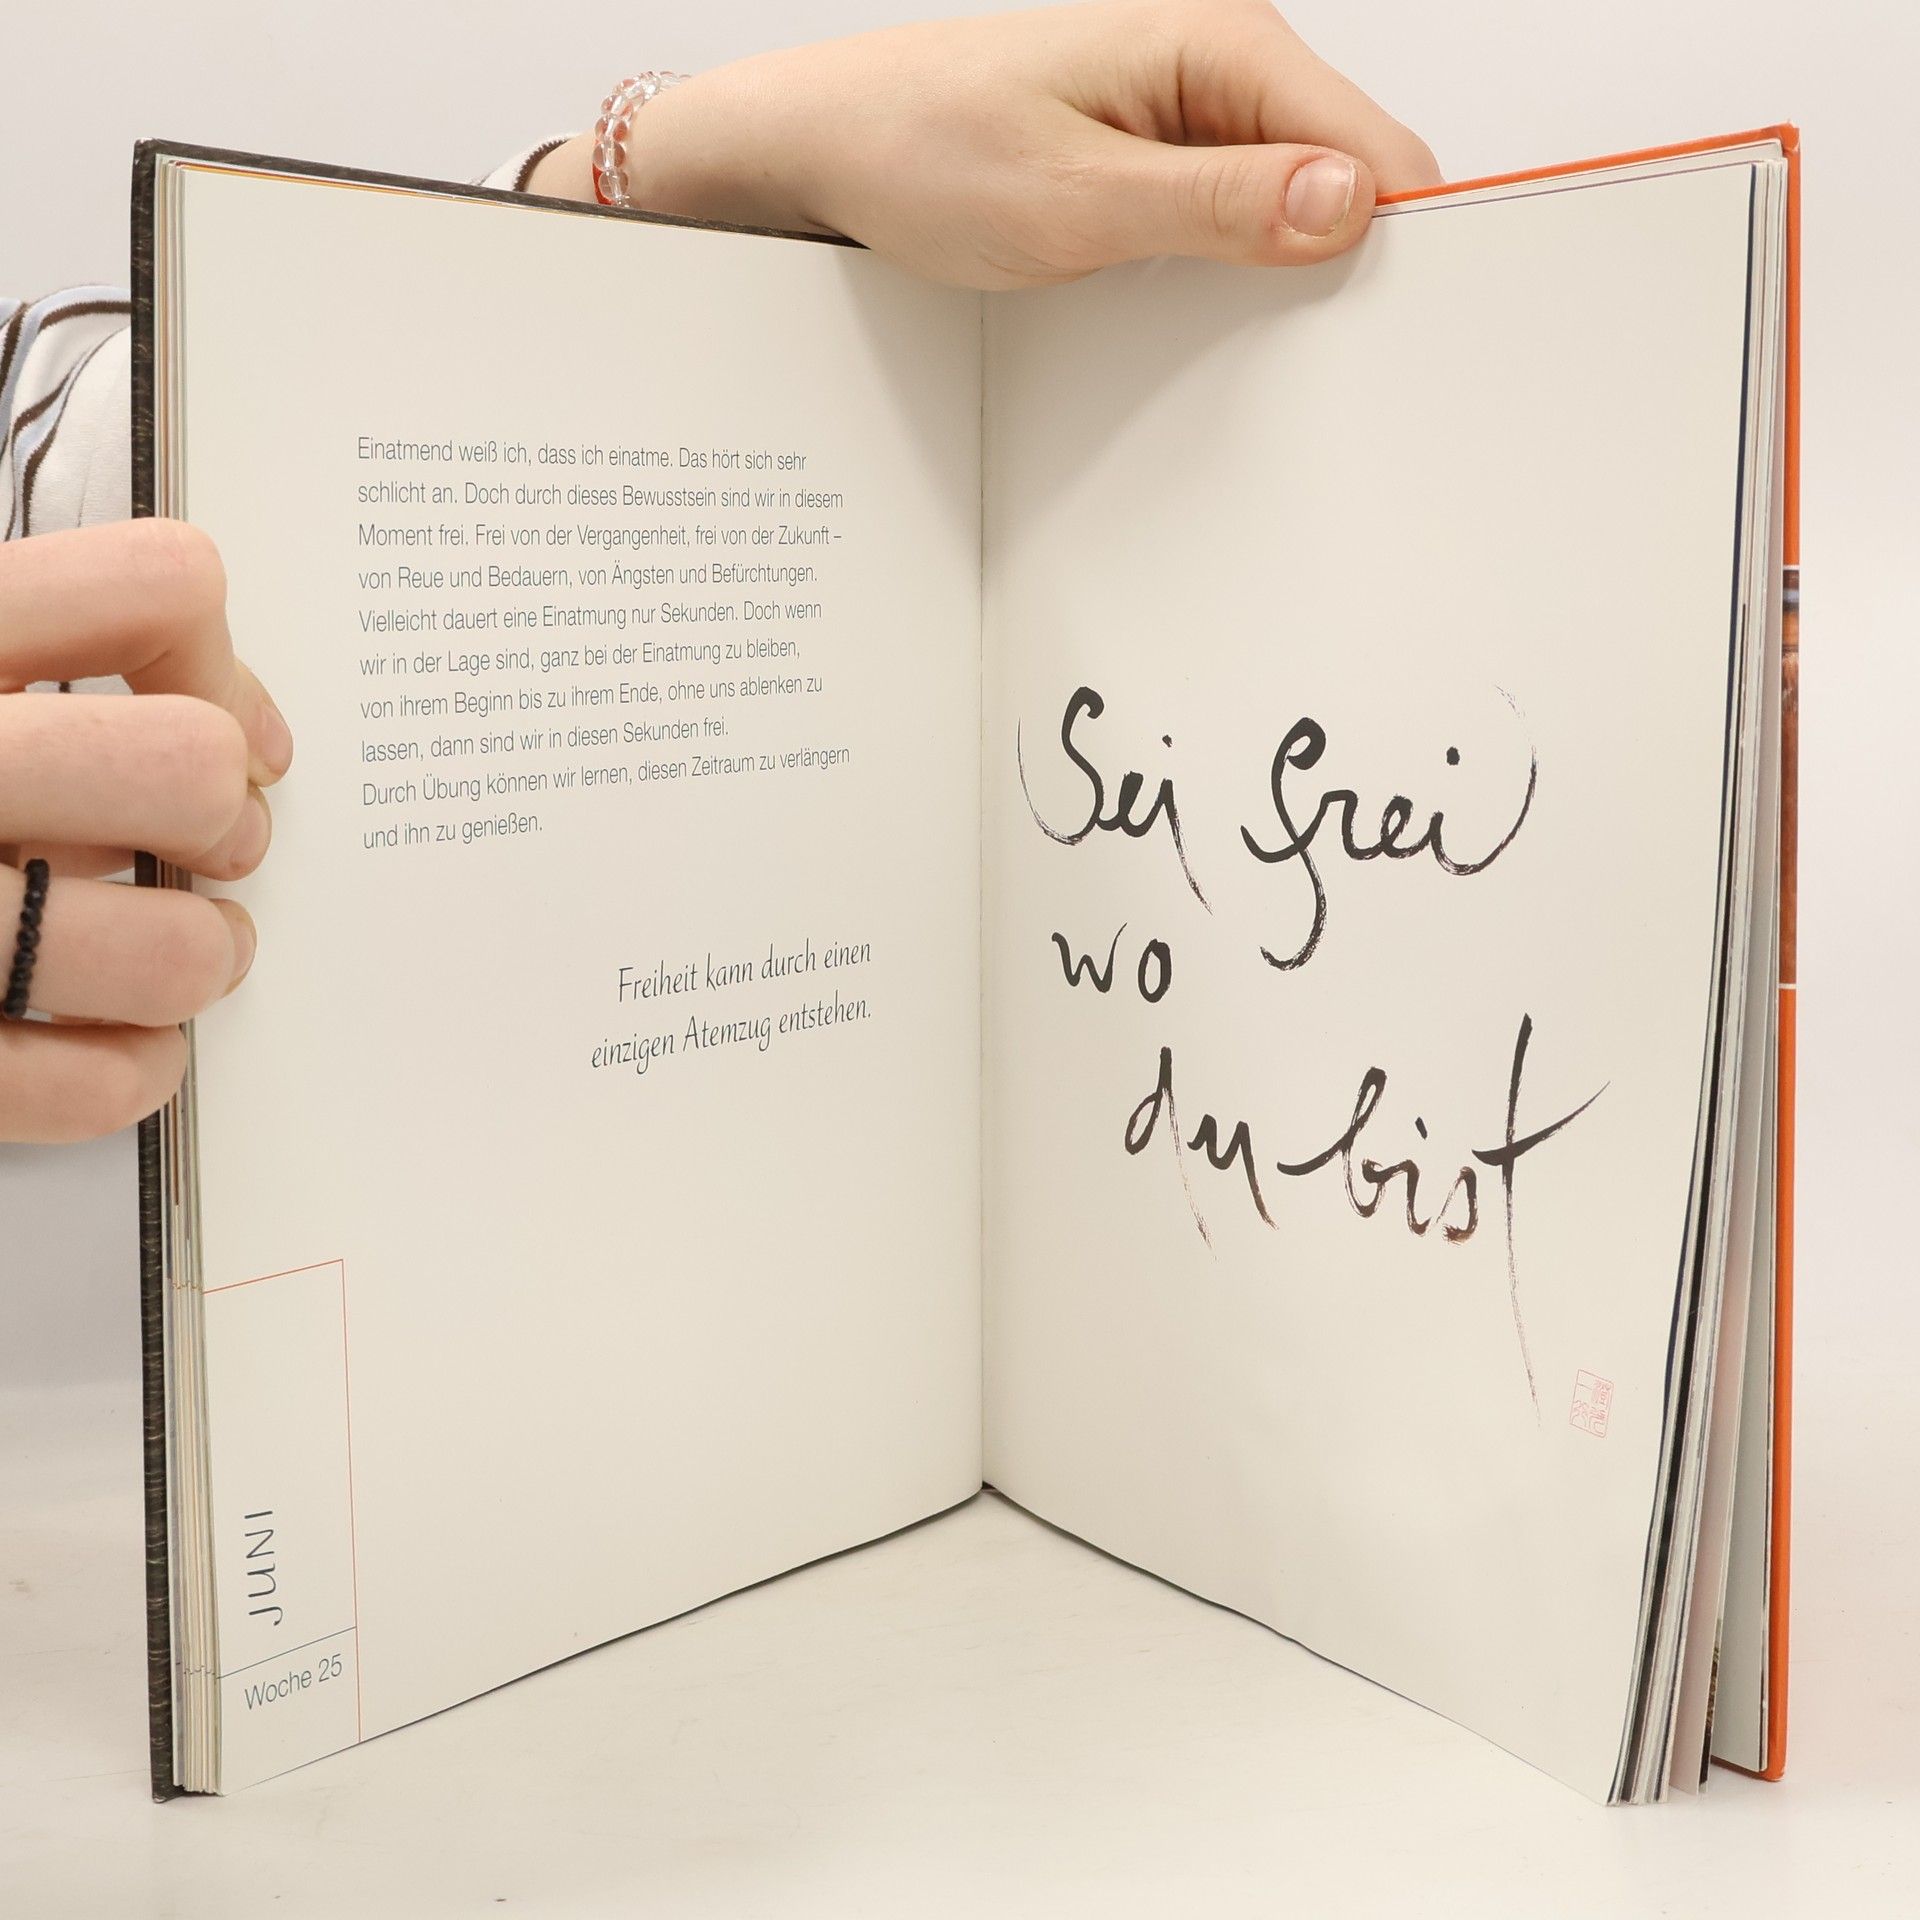 Einatmend weiß ich, dass ich einatme. Das hört sich sehr
schlicht an. Doch durch dieses Bewusstsein sind wir in diesem
Moment frei. Frei von der Vergangenheit, frei von der Zukunft –
von Reue und Bedauern, von Ängsten und Befürchtungen.
Vielleicht dauert eine Einatmung nur Sekunden. Doch wenn
wir in der Lage sind, ganz bei der Einatmung zu bleiben,
von ihrem Beginn bis zu ihrem Ende, ohne uns ablenken zu
lassen, dann sind wir in diesen Sekunden frei.
Durch Übung können wir lernen, diesen Zeitraum zu verlängern
und ihn zu genießen.
Freiheit kann durch einen
einzigen Atemzug entstehen.
JUNI
Woche 25
Sei frei
wo
du bist